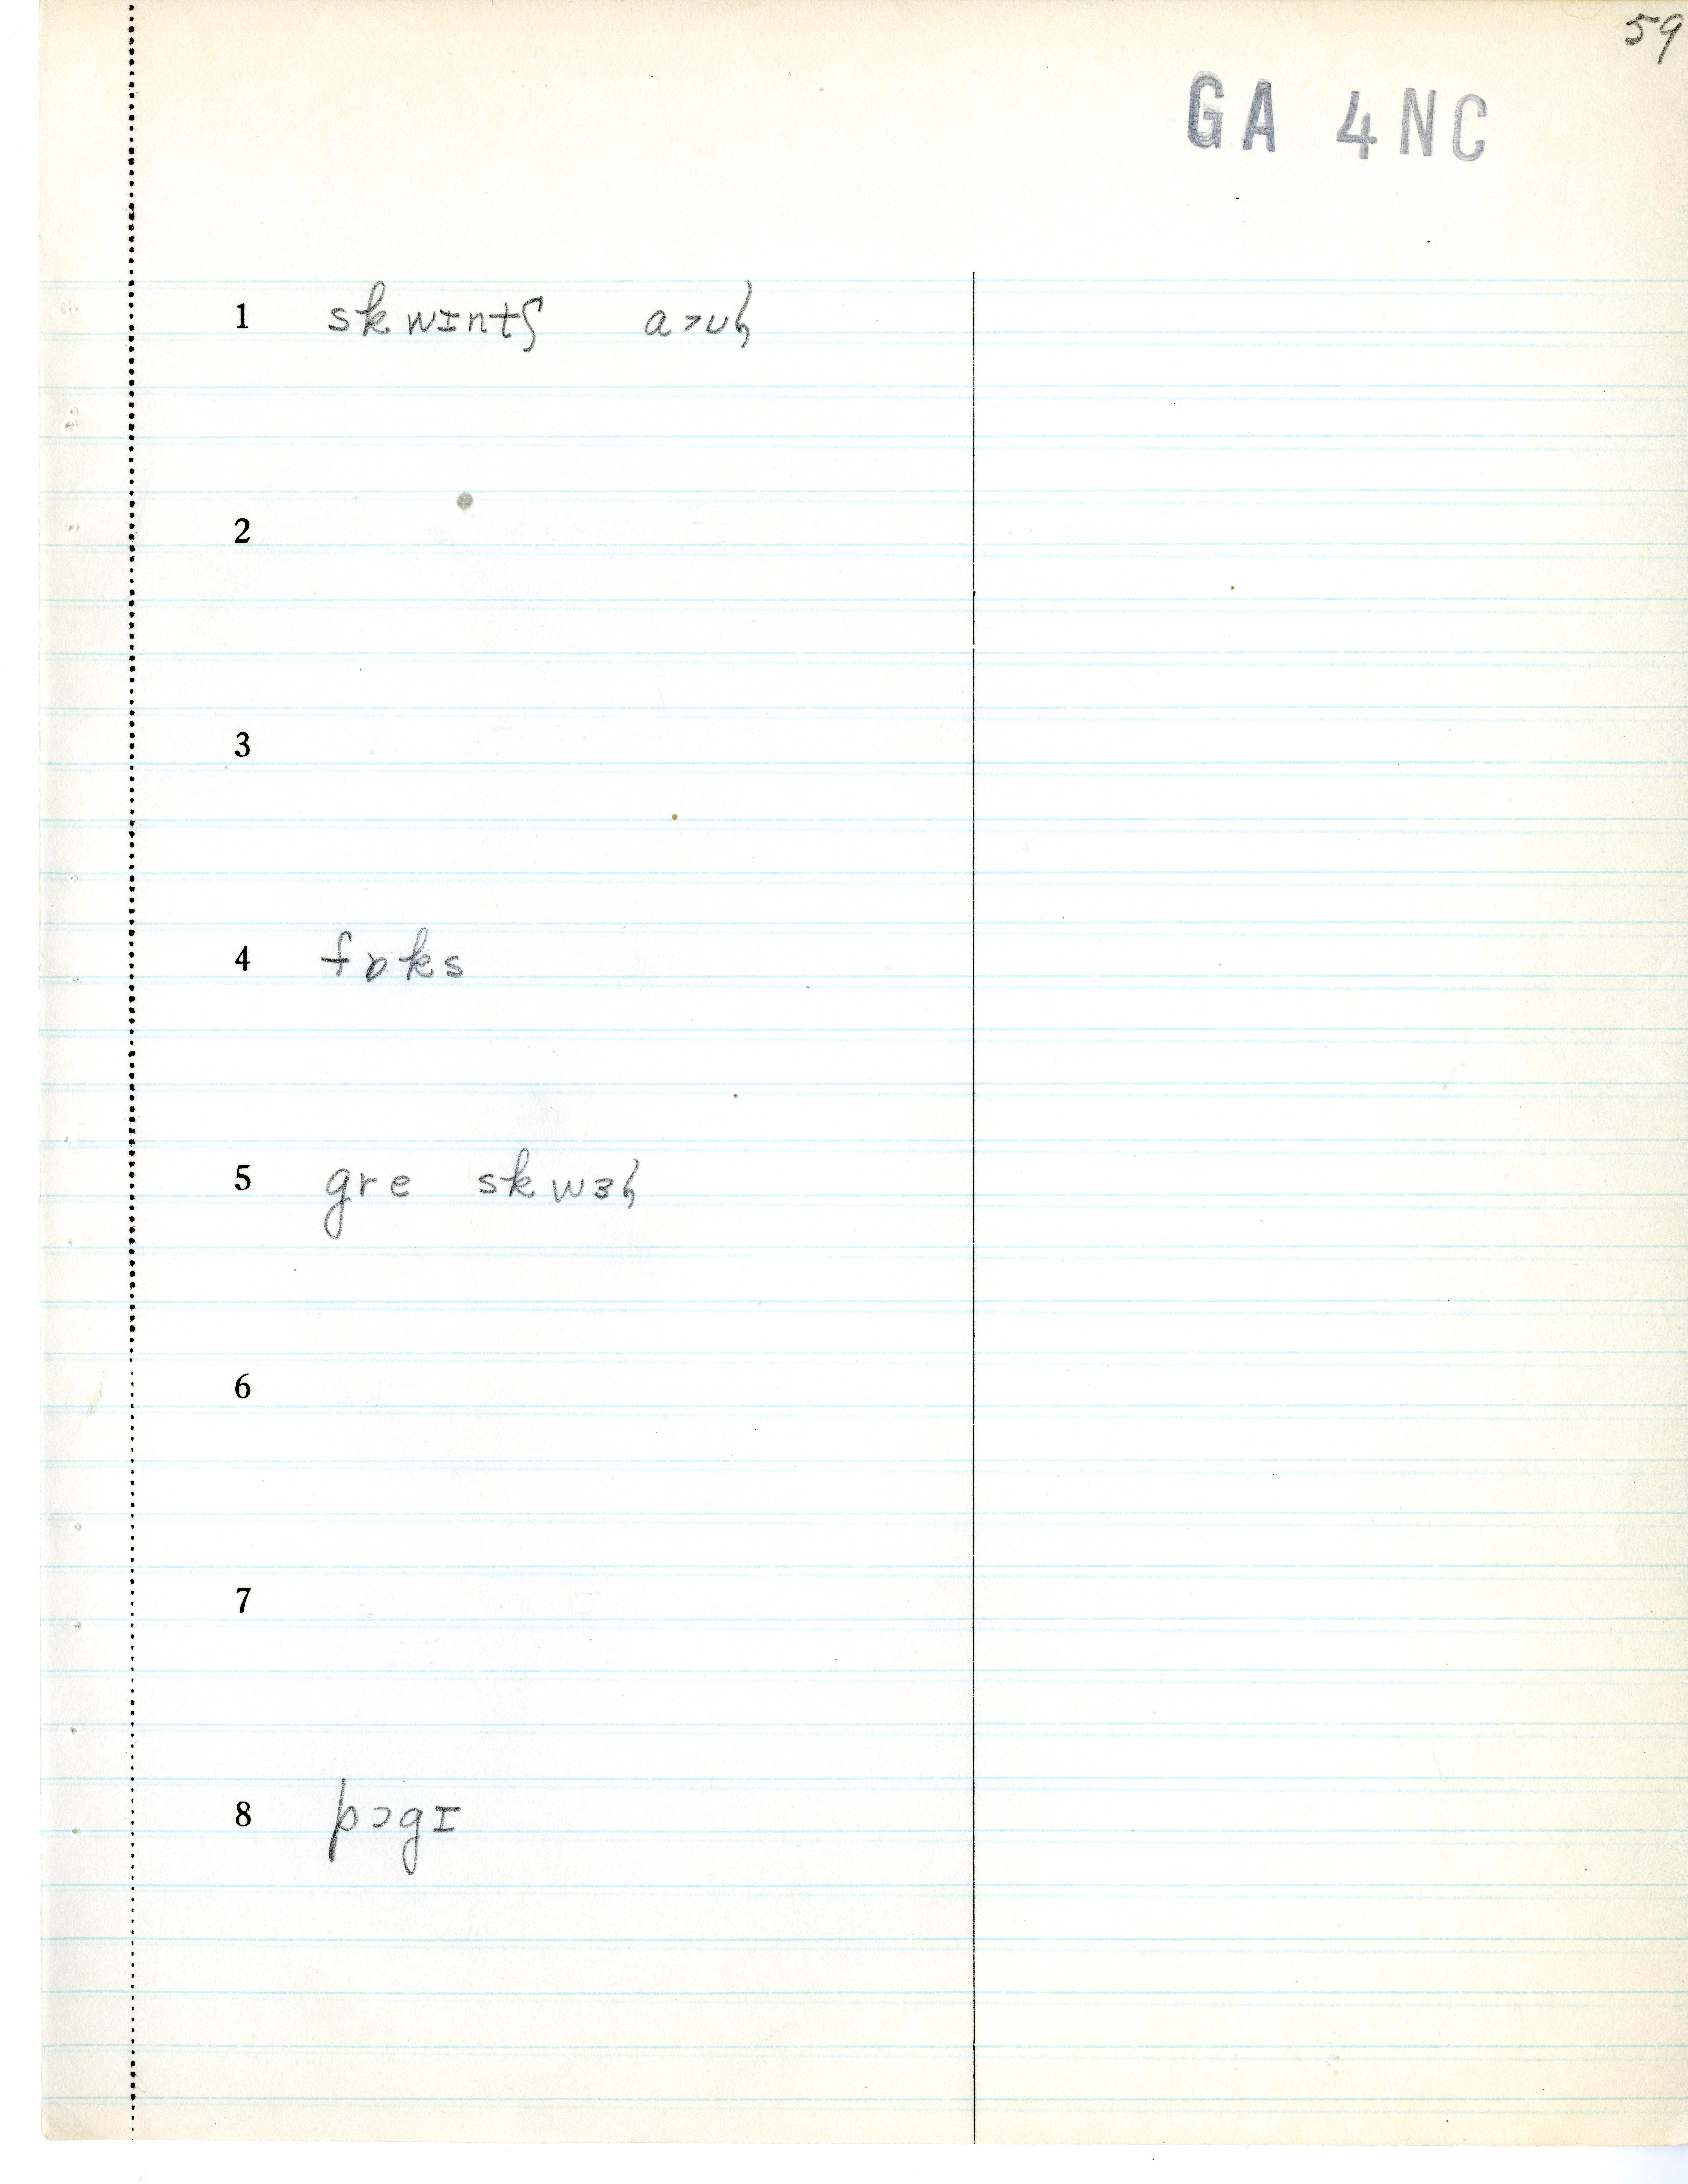 59
GA 4NC
1 skwɪntʃ a>ʊɫ
2
3
4 fɒks
5 gre skwɜɫ
6
7
8 pɔgɪ